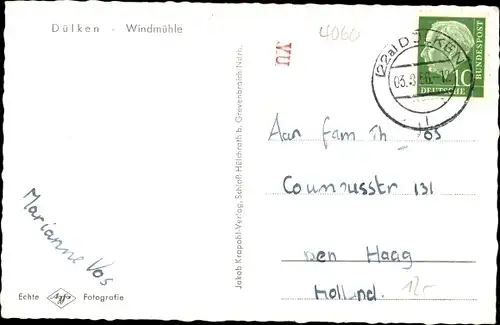 Dülken - Windmühle
4060
VU
(22a) DÜLKEN
03.3.56.-12
DEUTSCHE BUNDESPOST
10
Aan fam Th Vos
str 131
Den Haag
Holland.
12.-
Marianne Vos
Jakob Krapohl-Verlag, Schloß Hülchrath b. Grevenbroich Ndrh.
Echte Agfa Fotografie